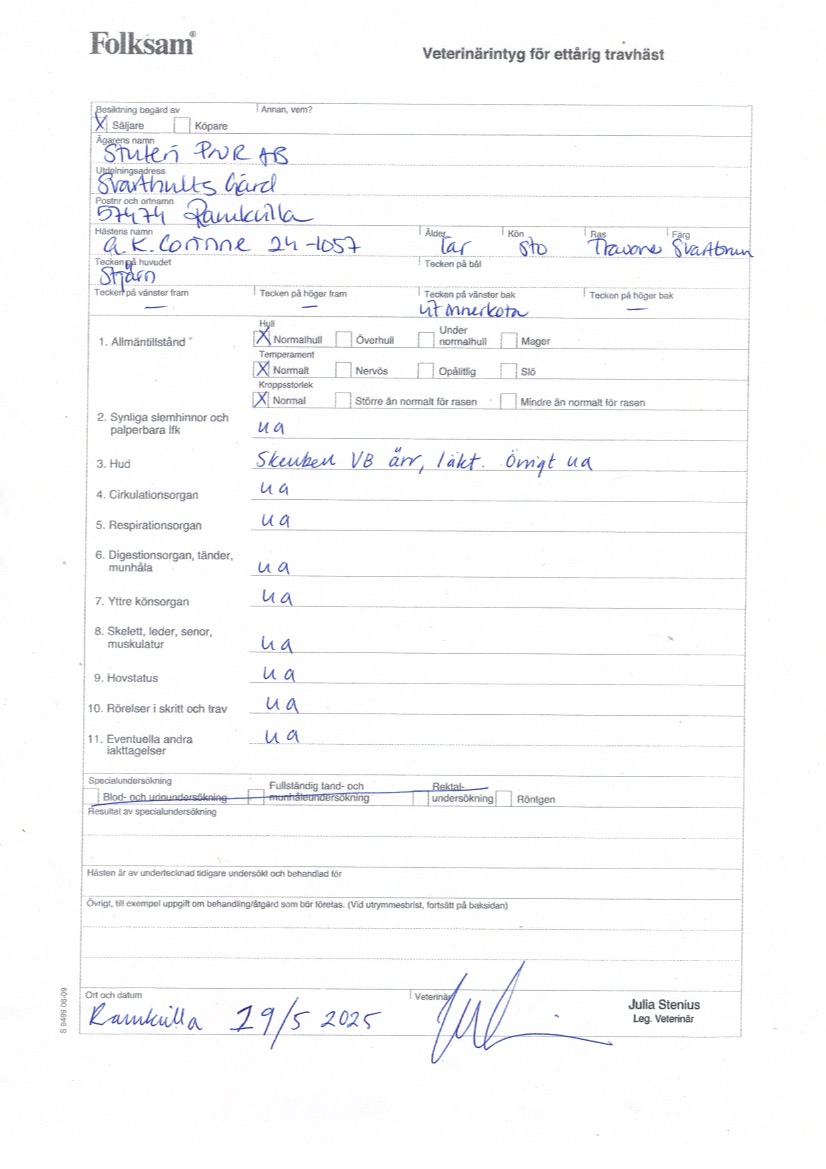 Folksam®
Veterinärintyg för ettårig travhäst
Besiktning begärd av Annan, vem?
X Säljare Köpare
Ägarens namn
Stuteri PNR AB
Utdelningsadress
Svarthults Gård
Postnr och ortnamn
57474 Ramkvilla
Hästens namn Ålder Kön Ras Färg
A.K. Corinne 24-1057 1år sto Travare Svartbrun
Tecken på huvudet Tecken på bål
Stjärn
Tecken på vänster fram Tecken på höger fram Tecken på vänster bak Tecken på höger bak
— — —
1. Allmäntillstånd
Hull
X Normalhull Överhull Under normalhull Mager
Temperament
X Normalt Nervös Opålitlig Slö
Kroppsstorlek
X Normal Större än normalt för rasen Mindre än normalt för rasen
2. Synliga slemhinnor och
palperbara lfk ua
3. Hud Skenben VB ärr, läkt. Övrigt ua
4. Cirkulationsorgan ua
5. Respirationsorgan ua
6. Digestionsorgan, tänder,
munhåla ua
7. Yttre könsorgan ua
8. Skelett, leder, senor,
muskulatur ua
9. Hovstatus ua
10. Rörelser i skritt och trav ua
11. Eventuella andra ua
iakttagelser
Specialundersökning
Blod- och urinundersökning Fullständig tand- och munhåleundersökning Rektal-undersökning Röntgen
Resultat av specialundersökning
Hästen är av undertecknad tidigare undersökt och behandlad för
Övrigt, till exempel uppgift om behandling/åtgärd som bör företas. (Vid utrymmesbrist, fortsätt på baksidan)
Ort och datum Veterinär
Ramkvilla 19/5 2025
Julia Stenius
Leg. Veterinär
S 9499 06-09